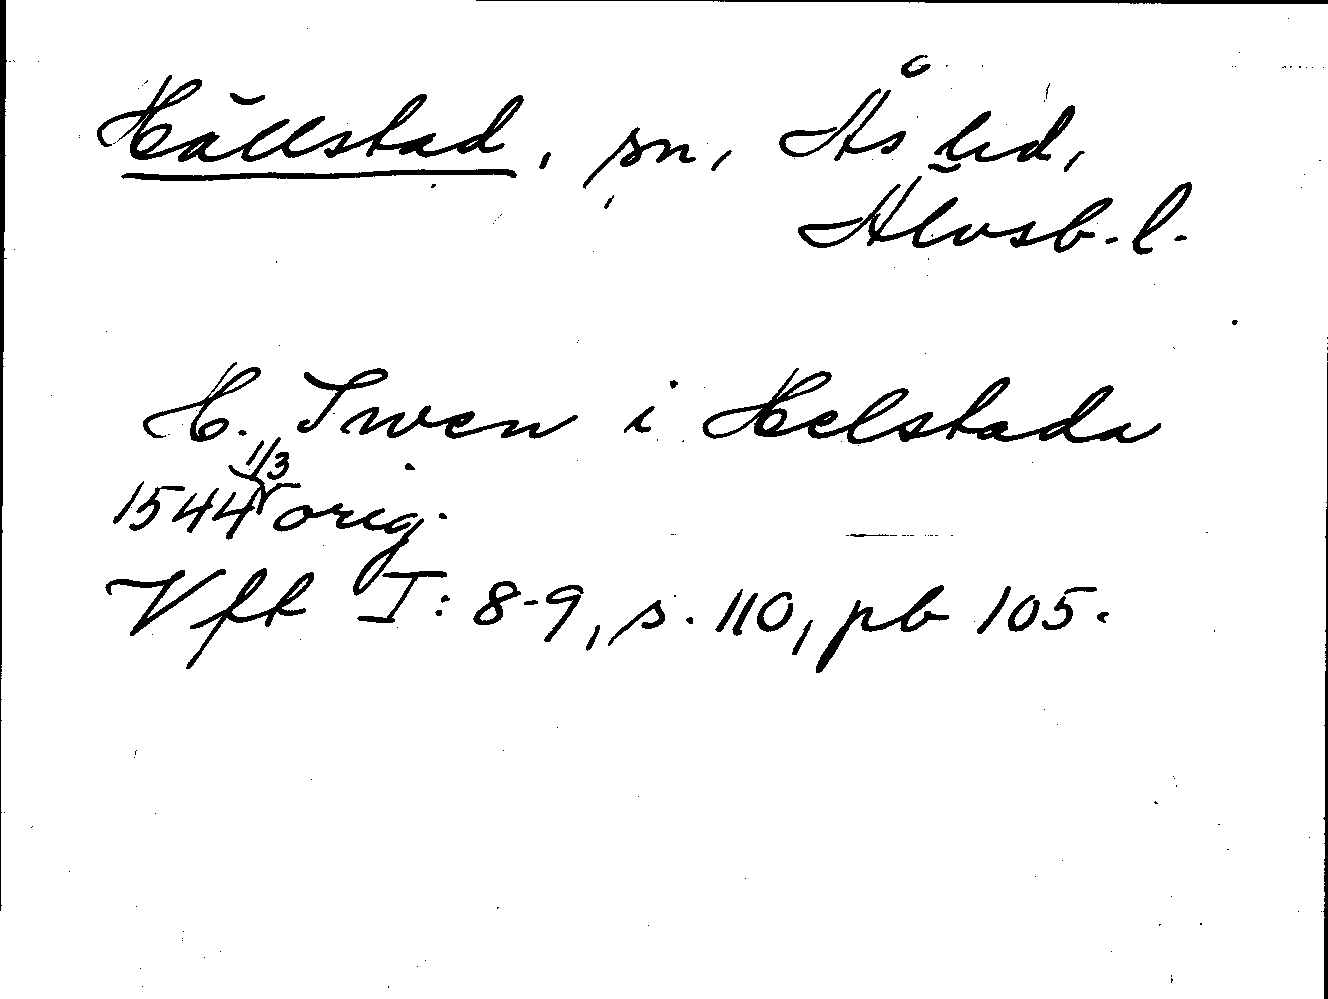 Hällstad, sn, Ås hd,
Älvsb. l.
H. Swen i Helstada
1544 1/3 orig.
Vft I: 8-9, s. 110, pb 105.